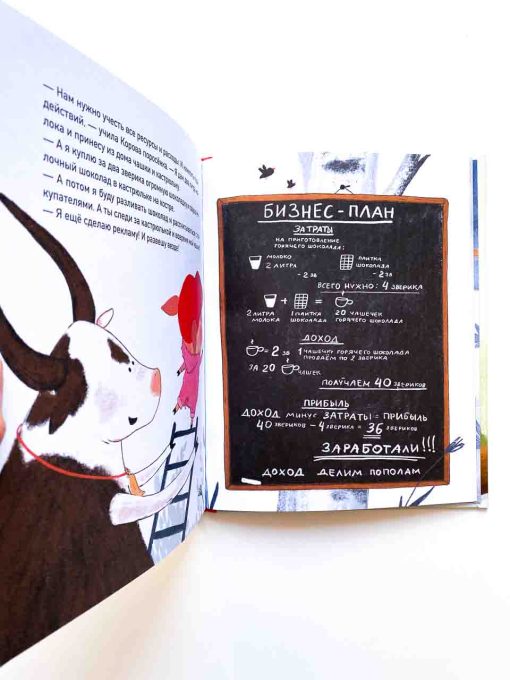 — Нам нужно учесть все ресурсы и расходы
действий, — учила Корова поросёнка. — Я дам два
лока и принесу из дома чашки и кастрюльку.
— А я куплю за два зверика огромную шоколадку и
лочный шоколад в кастрюльке на костре.
— А потом я буду разливать шоколад и
купателями. А ты следи за кастрюлькой и
— Я ещё сделаю рекламу! И развешу везде!
БИЗНЕС-ПЛАН
ЗАТРАТЫ
НА ПРИГОТОВЛЕНИЕ
ГОРЯЧЕГО ШОКОЛАДА:
МОЛОКО
2 ЛИТРА
- 2 зв
ПЛИТКА
ШОКОЛАДА
- 2 зв
ВСЕГО НУЖНО: 4 ЗВЕРИКА
+ =
2 ЛИТРА МОЛОКА
1 ПЛИТКА ШОКОЛАДА
20 ЧАШЕЧЕК ГОРЯЧЕГО ШОКОЛАДА
ДОХОД
= 2 зв
1 ЧАШЕЧКУ ГОРЯЧЕГО ШОКОЛАДА
ПРОДАЁМ ПО 2 ЗВЕРИКА
ЗА 20 ЧАШЕК
ПОЛУЧАЕМ 40 ЗВЕРИКОВ
ПРИБЫЛЬ
ДОХОД МИНУС ЗАТРАТЫ = ПРИБЫЛЬ
40 ЗВЕРИКОВ - 4 ЗВЕРИКА = 36 ЗВЕРИКОВ
ЗАРАБОТАЛИ!!!
ДОХОД ДЕЛИМ ПОПОЛАМ